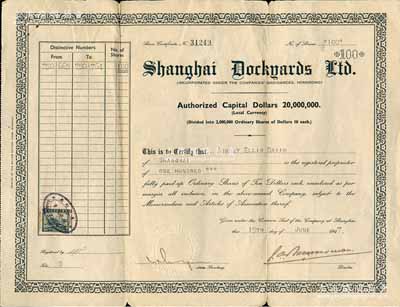 Share Certificate No. 31243
No. of Shares *100*
*100*
Distinctive Numbers
No. of Shares
From
To
Shanghai Dockyards Ltd.
(INCORPORATED UNDER THE COMPANIES' ORDINANCES, HONGKONG)
Authorized Capital Dollars 20,000,000.
(Local Currency)
(Divided into 2,000,000 Ordinary Shares of Dollars 10 each.)
This is to Certify that
of Shanghai is the registered proprietor
of ONE HUNDRED ***
fully paid up Ordinary Shares of Ten Dollars each, numbered as per
margin, all inclusive, in the above-named Company, subject to the
Memorandum and Articles of Association thereof.
Given under the Common Seal of the Company at Shanghai
this 19TH day of JUNE 1947.
Registered by
Director